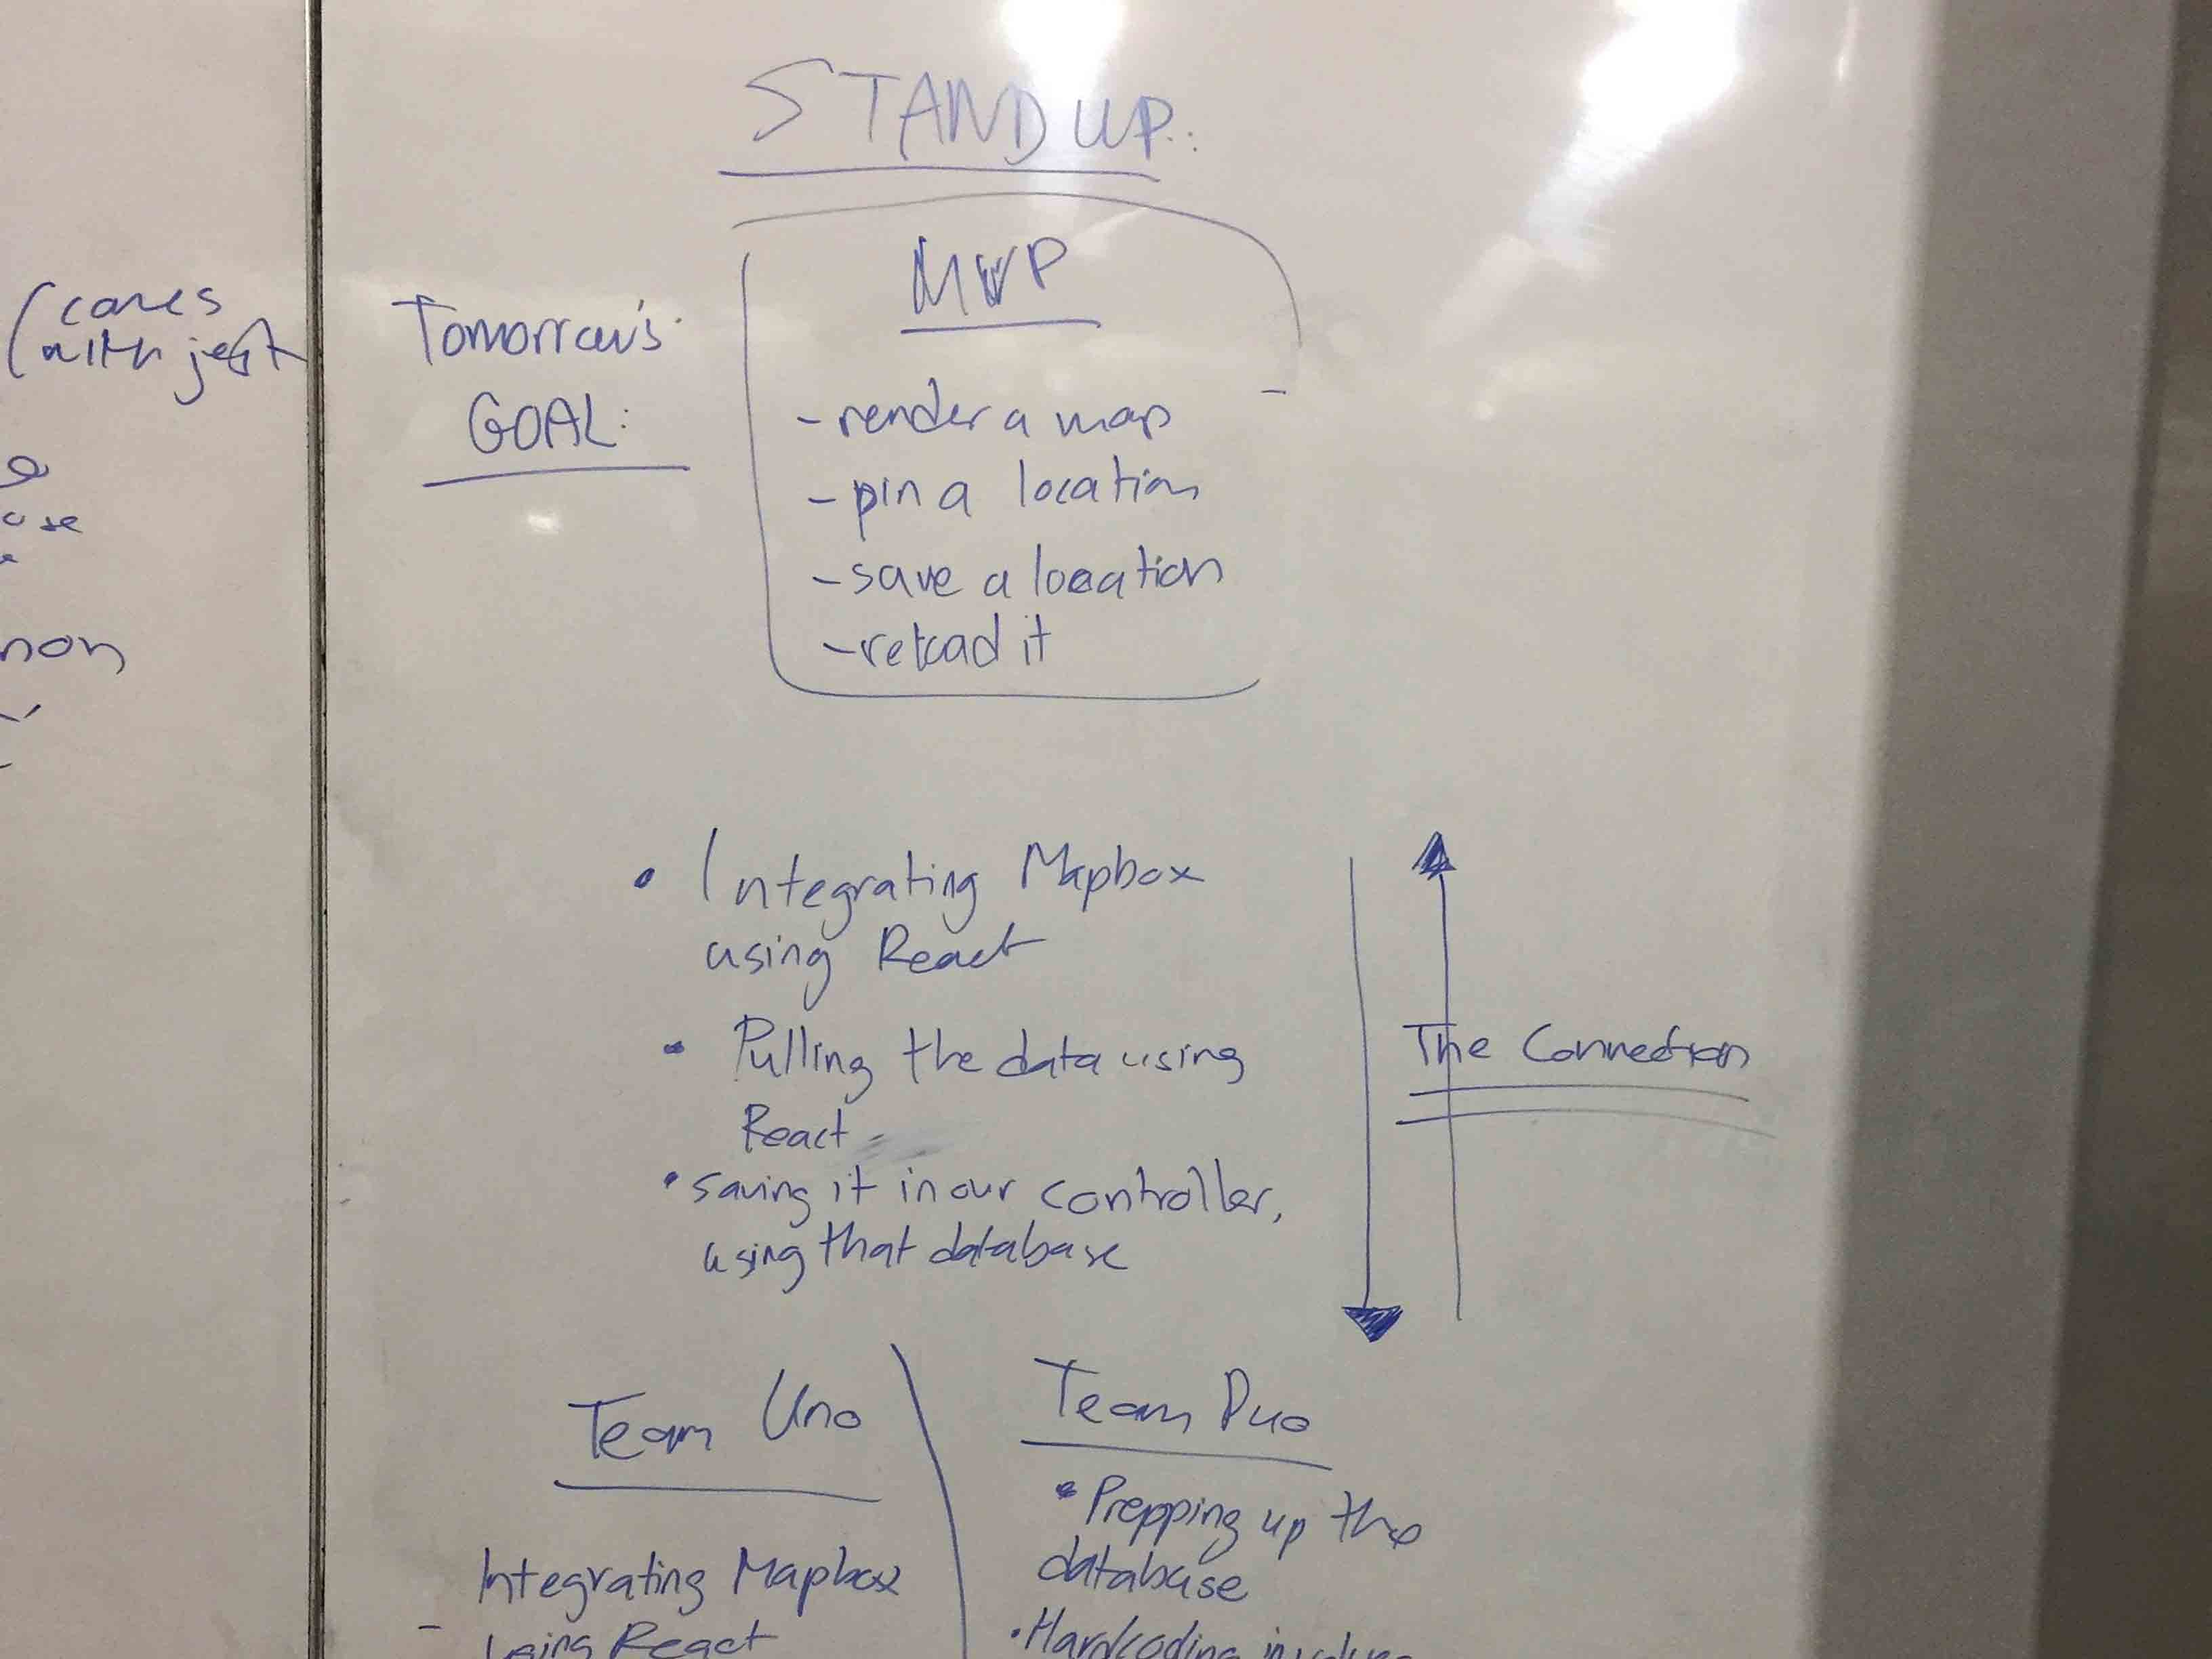 STAND UP:
MVP
Tomorrow's
GOAL:
- render a map
- pin a location
- save a location
- reload it
(comes
with jest
non
• Integrating Mapbox
using React
• Pulling the data using
React
• saving it in our controller,
using that database
The Connection
Team Uno
Integrating Mapbox
using React
Team Duo
• Prepping up the
database
• Hardcoding